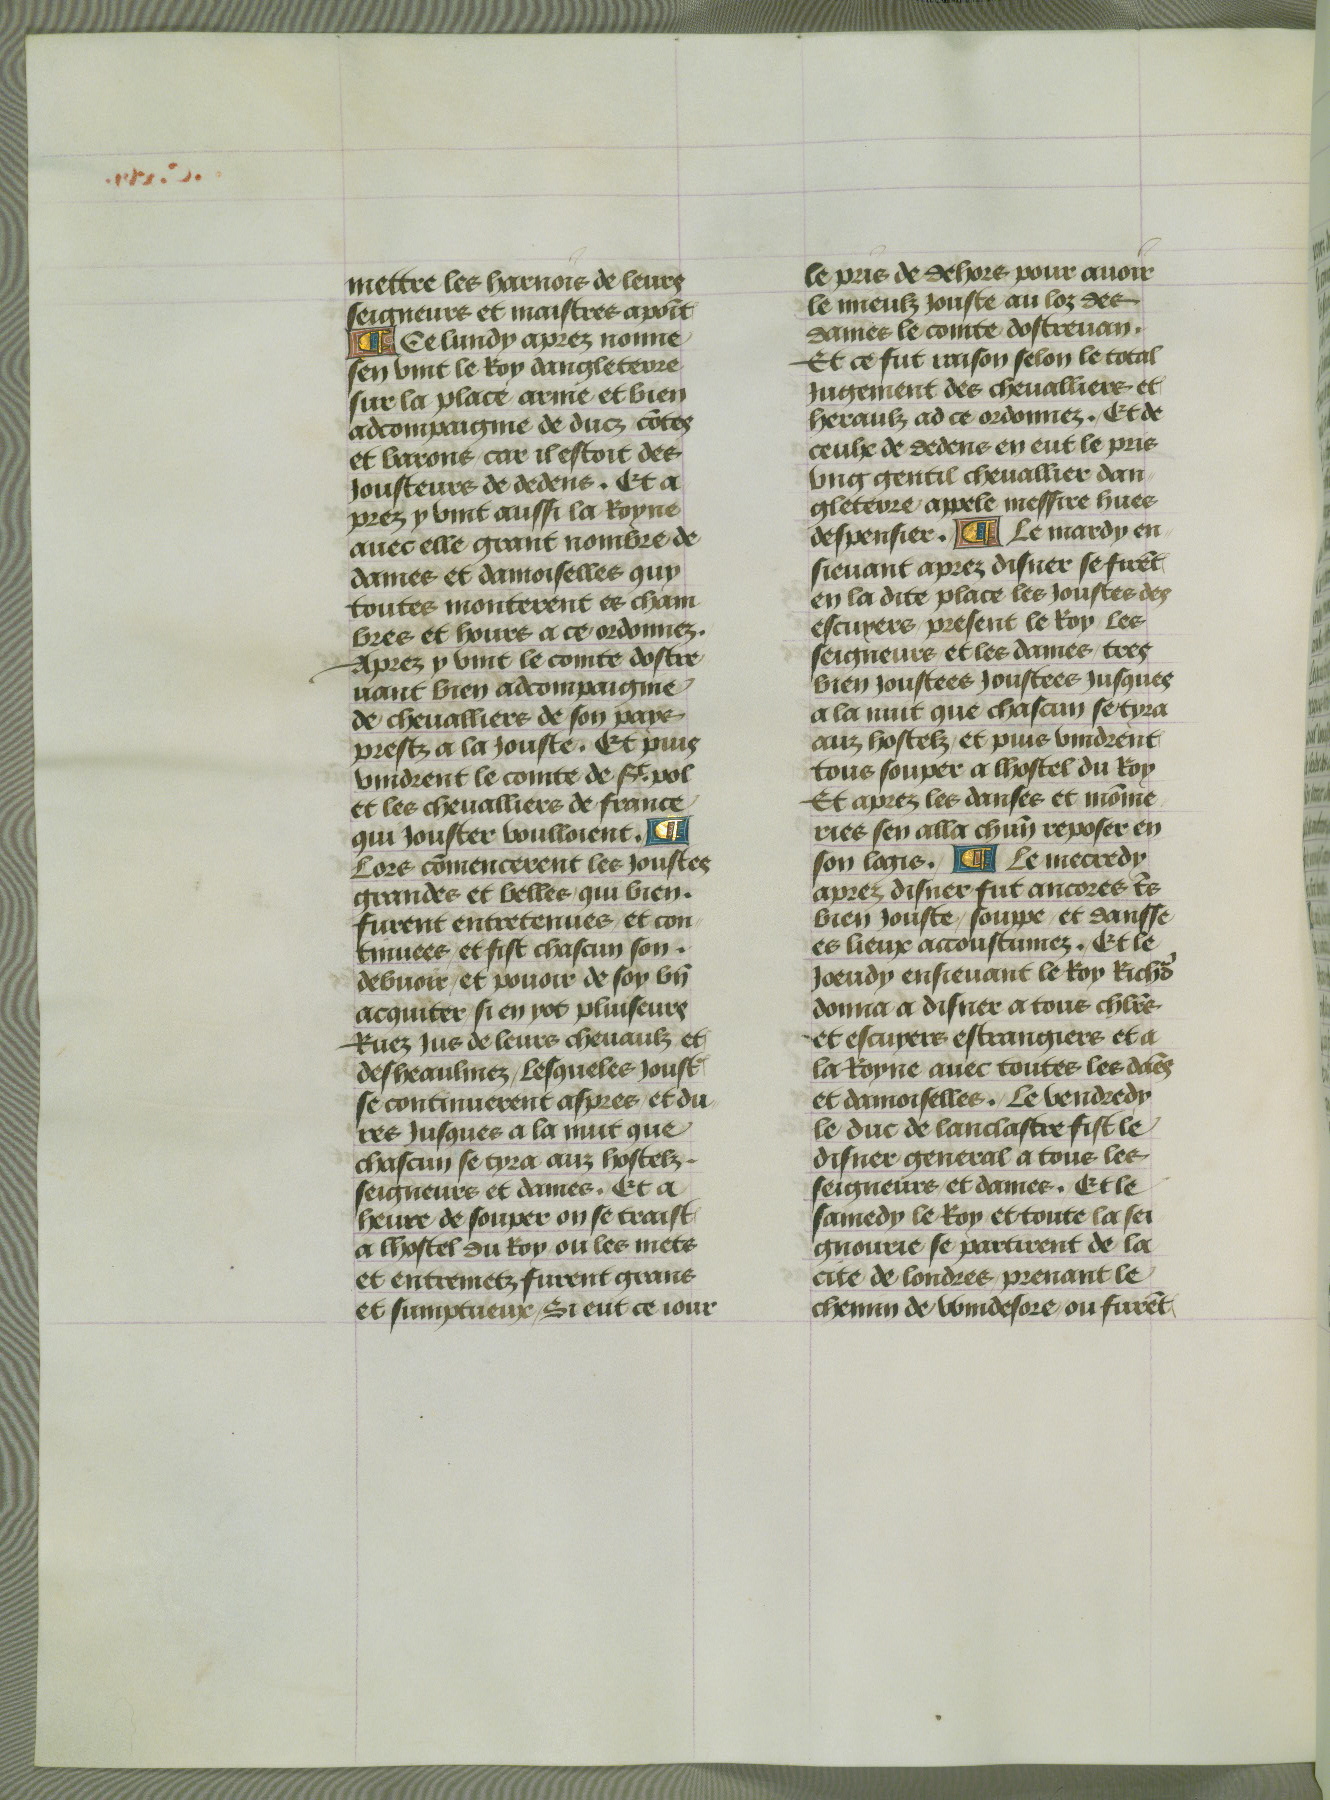 mettre les harnois de leurs
seigneurs et maistres apoīt
¶ Ce lundy aprez nonne
sen vint le Roy dangleterre
sur la place arme et bien
adcompaignie de ducz cōtes
et barons car il estoit des
Jousteurs de dedens . Et a
prez y vint aussi la Royne
auec elle grant nombre de
dames et damoiselles quy
toutes monterent es cham
bres et hours a ce ordonnez .
Aprez y vint le comte dostre
uant bien adcompaignie
de cheualliers de son pays
prestz a la Jouste . Et puis
vindrent le comte de st. pol
et les cheualliers de france
qui Jouster voulloient . ¶
Lors cōmencerent les Joustes
grandes et belles qui bien .
furent entretenues et con
tinuees et fist chascun son .
debuoir et pouoir de soy bn̄
acquiter si en yot pluiseurs
Ruez Jus de leurs cheuaulz et
desheaulmez / Lesqueles Joust
se continuerent aspres et du
res Jusques a la nuit que
chascun se tyra auz hostelz .
seigneurs et dames . Et a
heure de souper on se traist
a lhostel du Roy ou les mets
et entremetz furent grans
et sumptueux / Si eut ce iour
le pris de dehors pour auoir
le mieulz Jouste au loz des
dames le comte dostreuan .
Et ce fut raison selon le total
Jugement des cheualliers et
heraulz ad ce ordonnez . Et de
ceulx de dedens en eut le pris
vng gentil cheuallier dan
gleterre appele messire hues
despensier . ¶ Le mardy en
sieuant aprez disner se firēt
en la dite place les Joustes des
escuyers present le Roy les
seigneurs et les dames tres
bien Joustees Joustees Jusques
a la nuit que chascun se tyra
auz hostelz et puis vindrent
tous souper a lhostel du Roy
Et aprez les danses et mōme
ries sen alla chūn reposer en
son logis . ¶ Le mecredy
aprez disner fut ancores tr̄s
bien Jouste / souppe et dansse
es lieux accoustumez . Et le
Joeudy ensieuant le Roy Richd̄
donna a disner a tous chlr̄s
et escuyers estrangiers et a
la Royne auec toutes les dāes
et damoiselles . Le vendredy
le duc de lanclastre fist le
disner general a tous les
seigneurs et dames . Et le
samedy le Roy et toute la sei
gnourie se partirent de la
cite de londres prenant le
chemin de Windesore / ou furēt